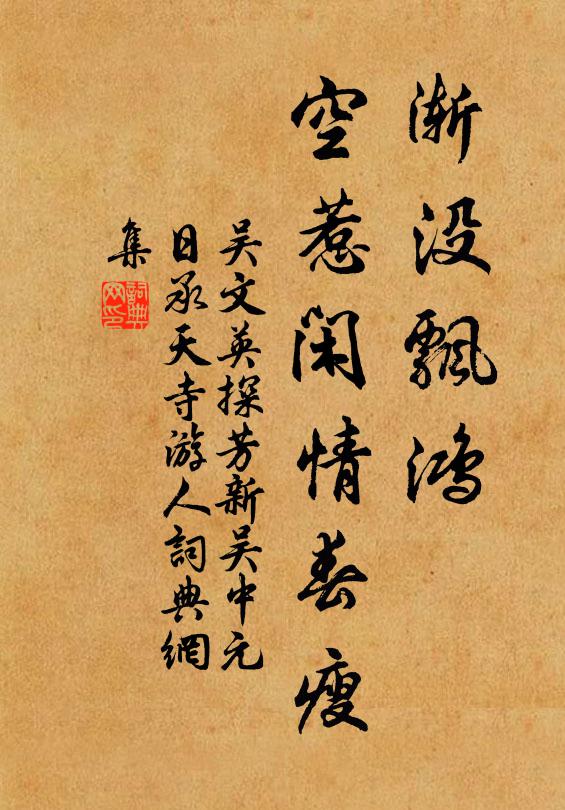 渐没飘鸿
空惹闲情春瘦
吴文英探芳新吴中元
日承天寺游人詞典網
集
詞典網印